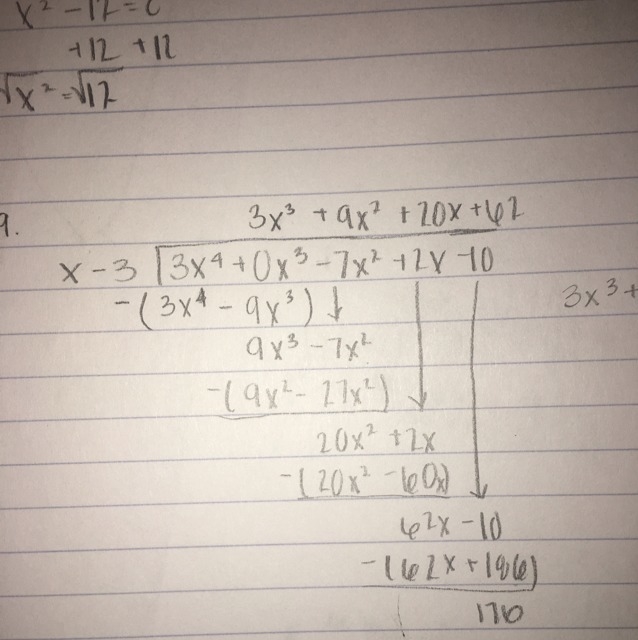 x² - 12 = 0
+12 +12
√x² = √12
9.
3x³ + 9x² + 20x + 62
x - 3 | 3x⁴ + 0x³ - 7x² + 2x - 10
-(3x⁴ - 9x³) ↓
3x³ +
9x³ - 7x²
-(9x² - 27x²)
20x² + 2x
-(20x² - 60x)
62x - 10
-(62x + 186)
176